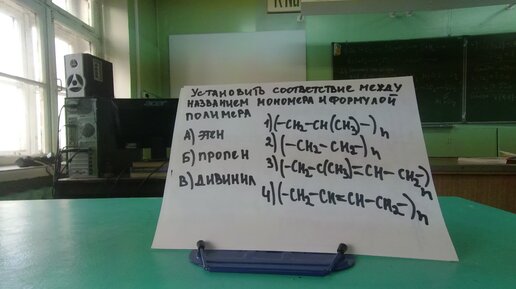 УСТАНОВИТЬ СООТВЕТСТВИЕ МЕЖДУ
НАЗВАНИЕМ МОНОМЕРА И ФОРМУЛОЙ
ПОЛИМЕРА
А) ЭТЕН
Б) ПРОПЕН
В) ДИВИНИЛ
1) (-CH2-CH(CH3)-)n
2) (-CH2-CH2-)n
3) (-CH2-C(CH3)=CH-CH2-)n
4) (-CH2-CH=CH-CH2-)n
acer